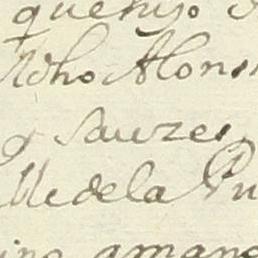 que hijo
dho Alons
y Sauzes
lle de la Pu
ino amano